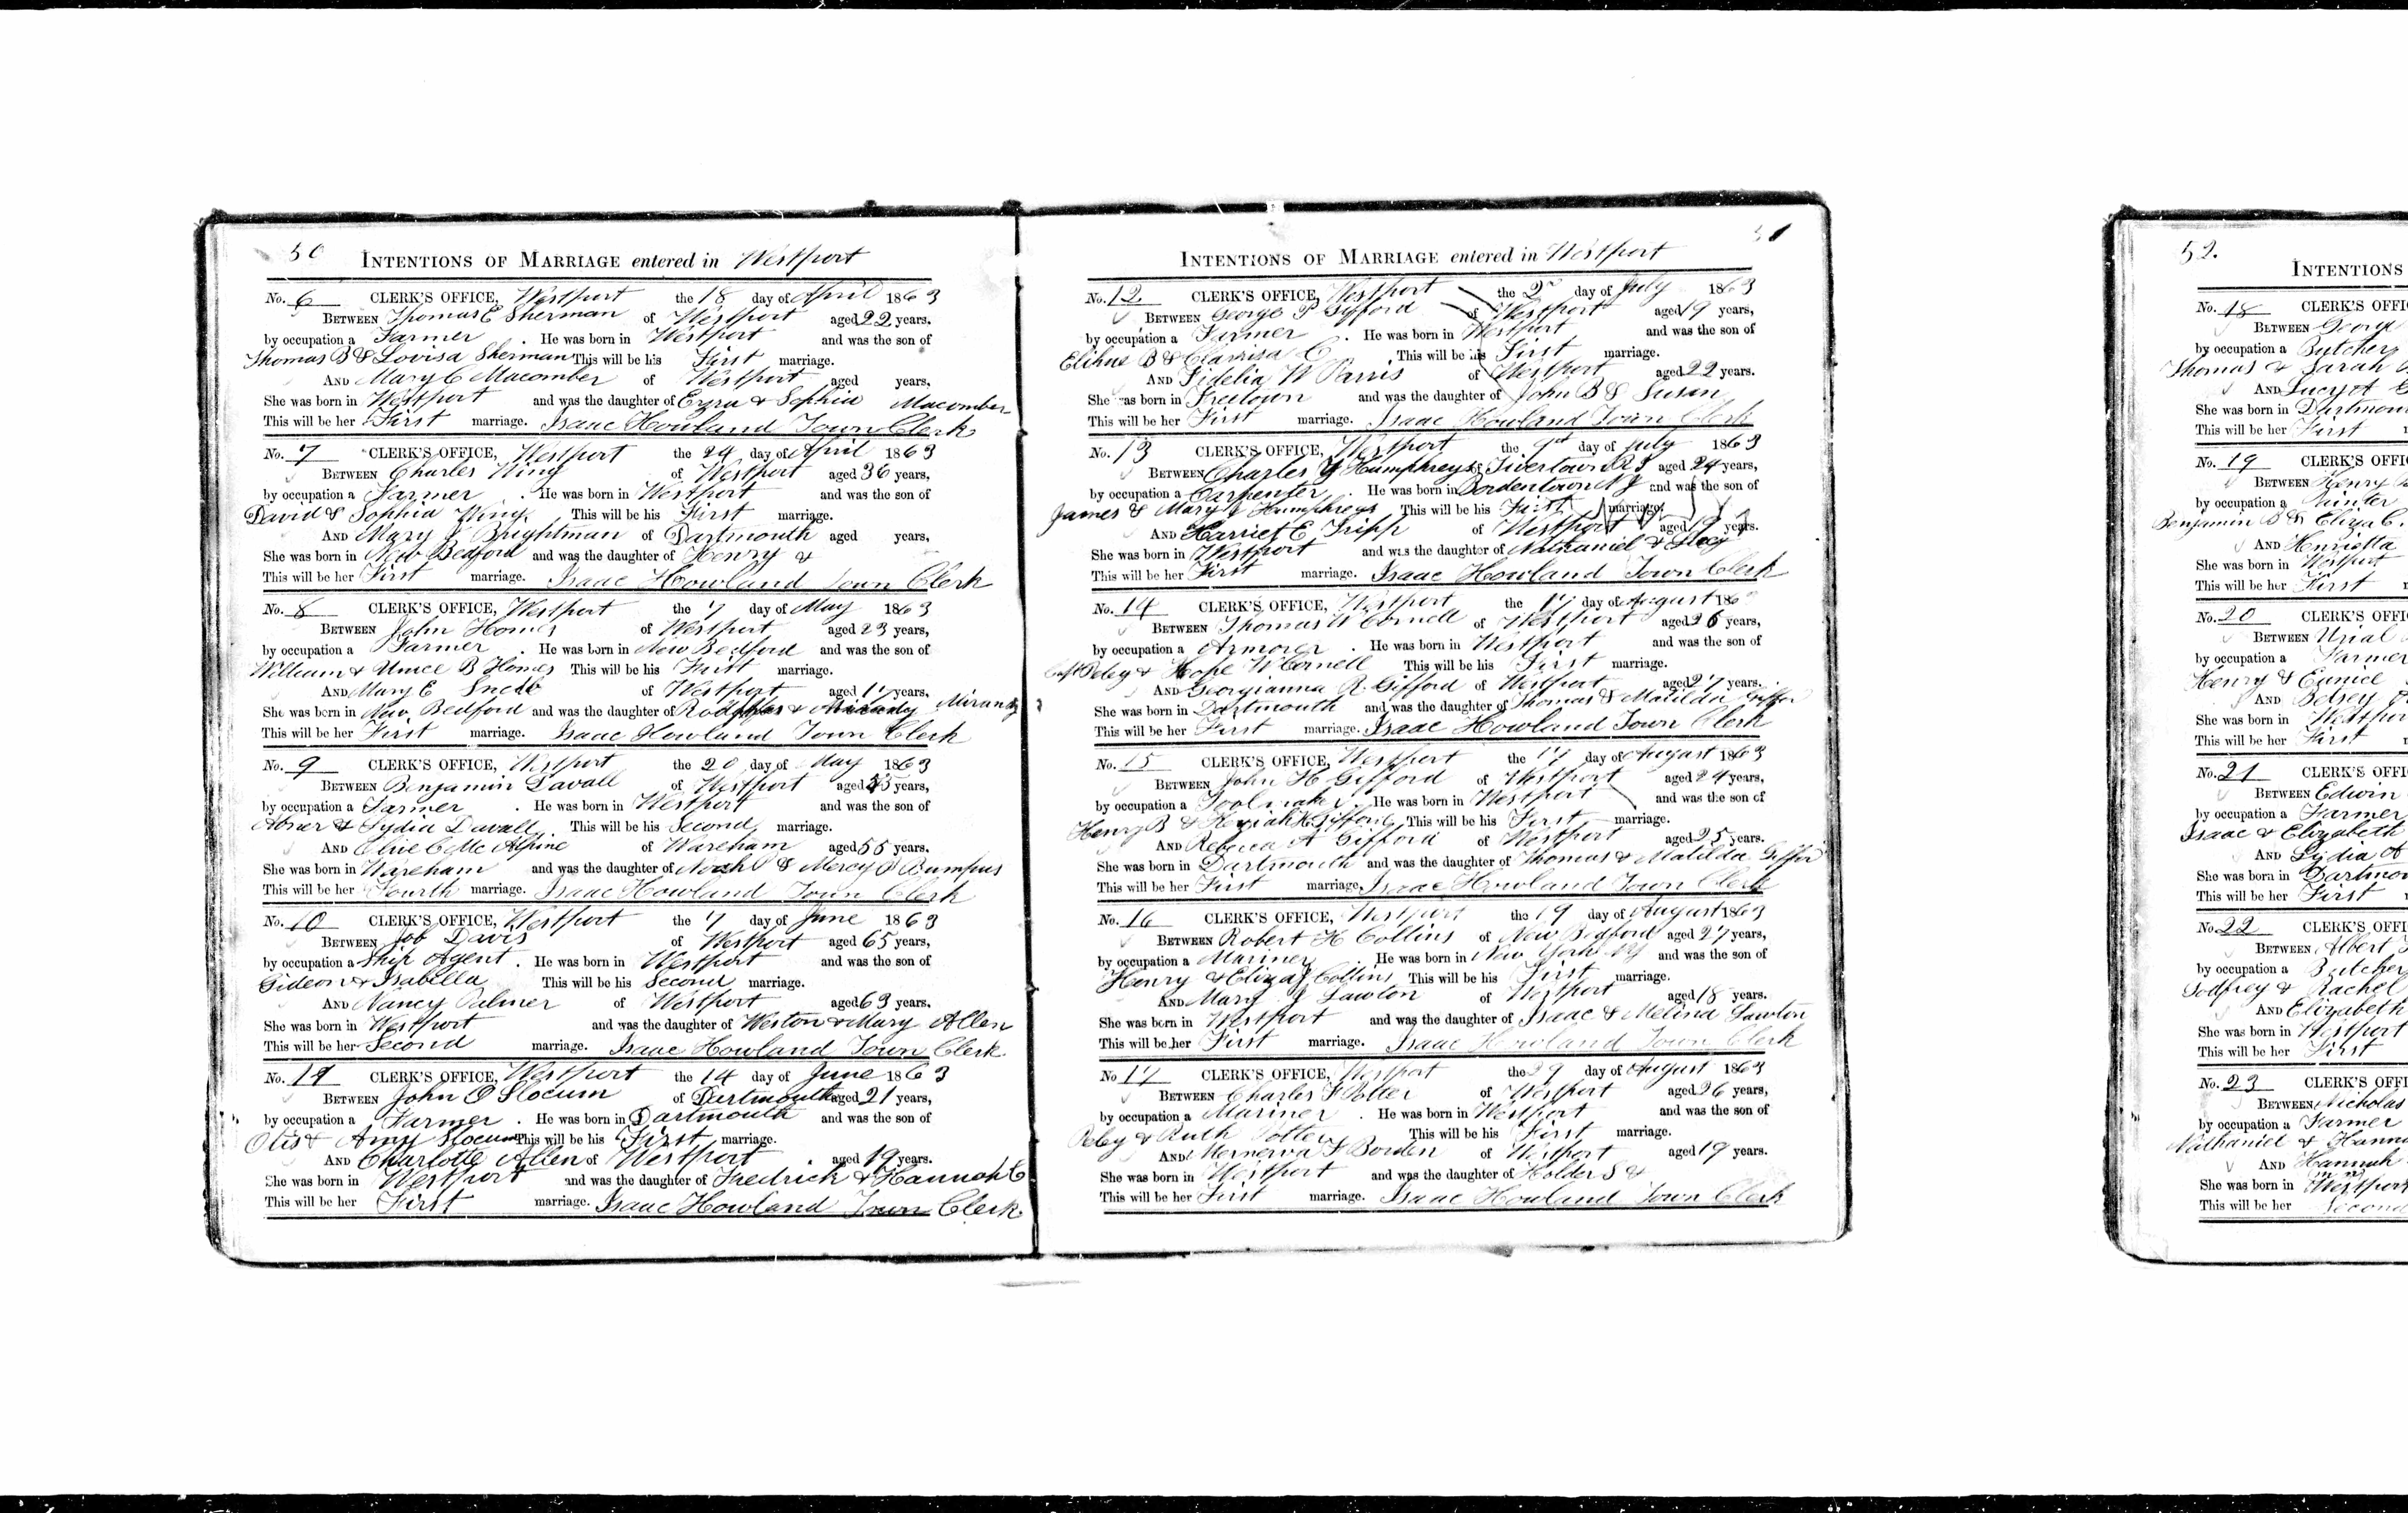 50 INTENTIONS OF MARRIAGE entered in Westport
No. 6 CLERK'S OFFICE, Westport the 18 day of April 1863
BETWEEN Thomas E Sherman of Westport aged 22 years.
by occupation a Farmer . He was born in Westport and was the son of
Thomas B & Lovisa Sherman This will be his First marriage.
AND Mary C Macomber of Westport aged years,
She was born in Westport and was the daughter of Ezra & Sophia Macomber
This will be her First marriage. Isaac Howland Town Clerk
No. 7 CLERK'S OFFICE, Westport the 24 day of April 1863
BETWEEN Charles Wing of Westport aged 36 years,
by occupation a Farmer . He was born in Westport and was the son of
David & Sophia Wing This will be his First marriage.
AND Mary Brightman of Dartmouth aged years,
She was born in New Bedford and was the daughter of Henry &
This will be her First marriage. Isaac Howland Town Clerk
No. 8 CLERK'S OFFICE, Westport the 7 day of May 1863
BETWEEN John Homes of Westport aged 23 years,
by occupation a Farmer . He was born in New Bedford and was the son of
William & B Homes This will be his First marriage.
AND Mary E of Westport aged 17 years,
She was born in New Bedford and was the daughter of & Miranda
This will be her First marriage. Isaac Howland Town Clerk
No. 9 CLERK'S OFFICE, Westport the 20 day of May 1863
BETWEEN Benjamin Davall of Westport aged years,
by occupation a Farmer . He was born in Westport and was the son of
Abner & Lydia Davall This will be his Second marriage.
AND C Mc Alpine of Wareham aged 55 years.
She was born in Wareham and was the daughter of Noah & Mercy Bumpus
This will be her Fourth marriage. Isaac Howland Town Clerk
No. 10 CLERK'S OFFICE, Westport the 7 day of June 1863
BETWEEN Job Davis of Westport aged 65 years,
by occupation a Ship Agent . He was born in Westport and was the son of
Gideon & Isabella This will be his Second marriage.
AND Nancy Palmer of Westport aged 63 years.
She was born in Westport and was the daughter of Weston & Mary Allen
This will be her Second marriage. Isaac Howland Town Clerk.
No. 11 CLERK'S OFFICE, Westport the 14 day of June 1863
BETWEEN John O Slocum of Dartmouth aged 21 years,
by occupation a Farmer . He was born in Dartmouth and was the son of
Otis & Amy Slocum This will be his First marriage.
AND Charlotte Allen of Westport aged 19 years.
She was born in Westport and was the daughter of Fredrick & Hannah C
This will be her First marriage. Isaac Howland Town Clerk.
51
INTENTIONS OF MARRIAGE entered in Westport
No. 12 CLERK'S OFFICE, Westport the 2 day of July 1863
BETWEEN George P Gifford of Westport aged 19 years,
by occupation a Farmer . He was born in Westport and was the son of
Elihue B & Clarrisa C This will be his First marriage.
AND Fidelia W Parris of Westport aged 22 years.
She was born in Freetown and was the daughter of John B & Susan
This will be her First marriage. Isaac Howland Town Clerk
No. 13 CLERK'S OFFICE, Westport the day of July 1863
BETWEEN Charles Y Humphreys of Tivertown R I aged 24 years,
by occupation a Carpenter . He was born in Bordentown N J and was the son of
James & Mary Humphreys This will be his First marriage.
AND Harriet E Tripp of Westport aged 19 years.
She was born in Westport and was the daughter of Nathaniel &
This will be her First marriage. Isaac Howland Town Clerk
No. 14 CLERK'S OFFICE, Westport the 17 day of August 186
BETWEEN Thomas W Cornell of Westport aged 26 years,
by occupation a . He was born in Westport and was the son of
Capt Peleg & Hope W Cornell This will be his First marriage.
AND Georgianna R. Gifford of Westport aged 27 years.
She was born in Dartmouth and was the daughter of Thomas & Matilda
This will be her First marriage. Isaac Howland Town Clerk
No. 15 CLERK'S OFFICE, Westport the 17 day of August 1863
BETWEEN John H Gifford of Westport aged 24 years,
by occupation a Toolmaker . He was born in Westport and was the son of
Henry B & Keziah K Gifford This will be his First marriage.
AND Rebecca A Gifford of Westport aged 25 years.
She was born in Dartmouth and was the daughter of Thomas & Matilda
This will be her First marriage. Isaac Howland Town Clerk
No. 16 CLERK'S OFFICE, Westport the 19 day of August 1863
BETWEEN Robert H Collins of New Bedford aged 27 years,
by occupation a Mariner . He was born in New York NY and was the son of
Henry & Eliza Collins This will be his First marriage.
AND Mary J Lawton of Westport aged 18 years.
She was born in Westport and was the daughter of Isaac & Melina Lawton
This will be her First marriage. Isaac Howland Town Clerk
No 17 CLERK'S OFFICE, Westport the 29 day of August 1863
BETWEEN Charles F Potter of Westport aged 26 years,
by occupation a Mariner . He was born in Westport and was the son of
Peleg & Ruth Potter This will be his First marriage.
AND Mernerva F Borden of Westport aged 19 years.
She was born in Westport and was the daughter of Holder S &
This will be her First marriage. Isaac Howland Town Clerk
52.
INTENTIONS
No. 18 CLERK'S OFFI
BETWEEN George
by occupation a Butcher
Thomas & Sarah
AND Lucy A
She was born in Dartmou
This will be her First
No. 19 CLERK'S OFFI
BETWEEN Henry
by occupation a
Benjamin B & Eliza C.
AND Henrietta
She was born in Westport
This will be her First
No. 20 CLERK'S OFFI
BETWEEN Urial
by occupation a Farmer
Henry & Eunice
AND Betsey
She was born in Westpor
This will be her First
No. 21 CLERK'S OFFI
BETWEEN Edwin
by occupation a Farmer
Isaac & Elizabeth
AND Lydia A
She was born in Dartmo
This will be her First
No. 22 CLERK'S OFFI
BETWEEN Albert
by occupation a Butcher
Godfrey & Rachel
AND Elizabeth
She was born in Westport
This will be her First
No. 23 CLERK'S OFFI
BETWEEN Nicholas
by occupation a Farmer
Nathaniel & Hanna
AND Hannah
She was born in Westport
This will be her Second